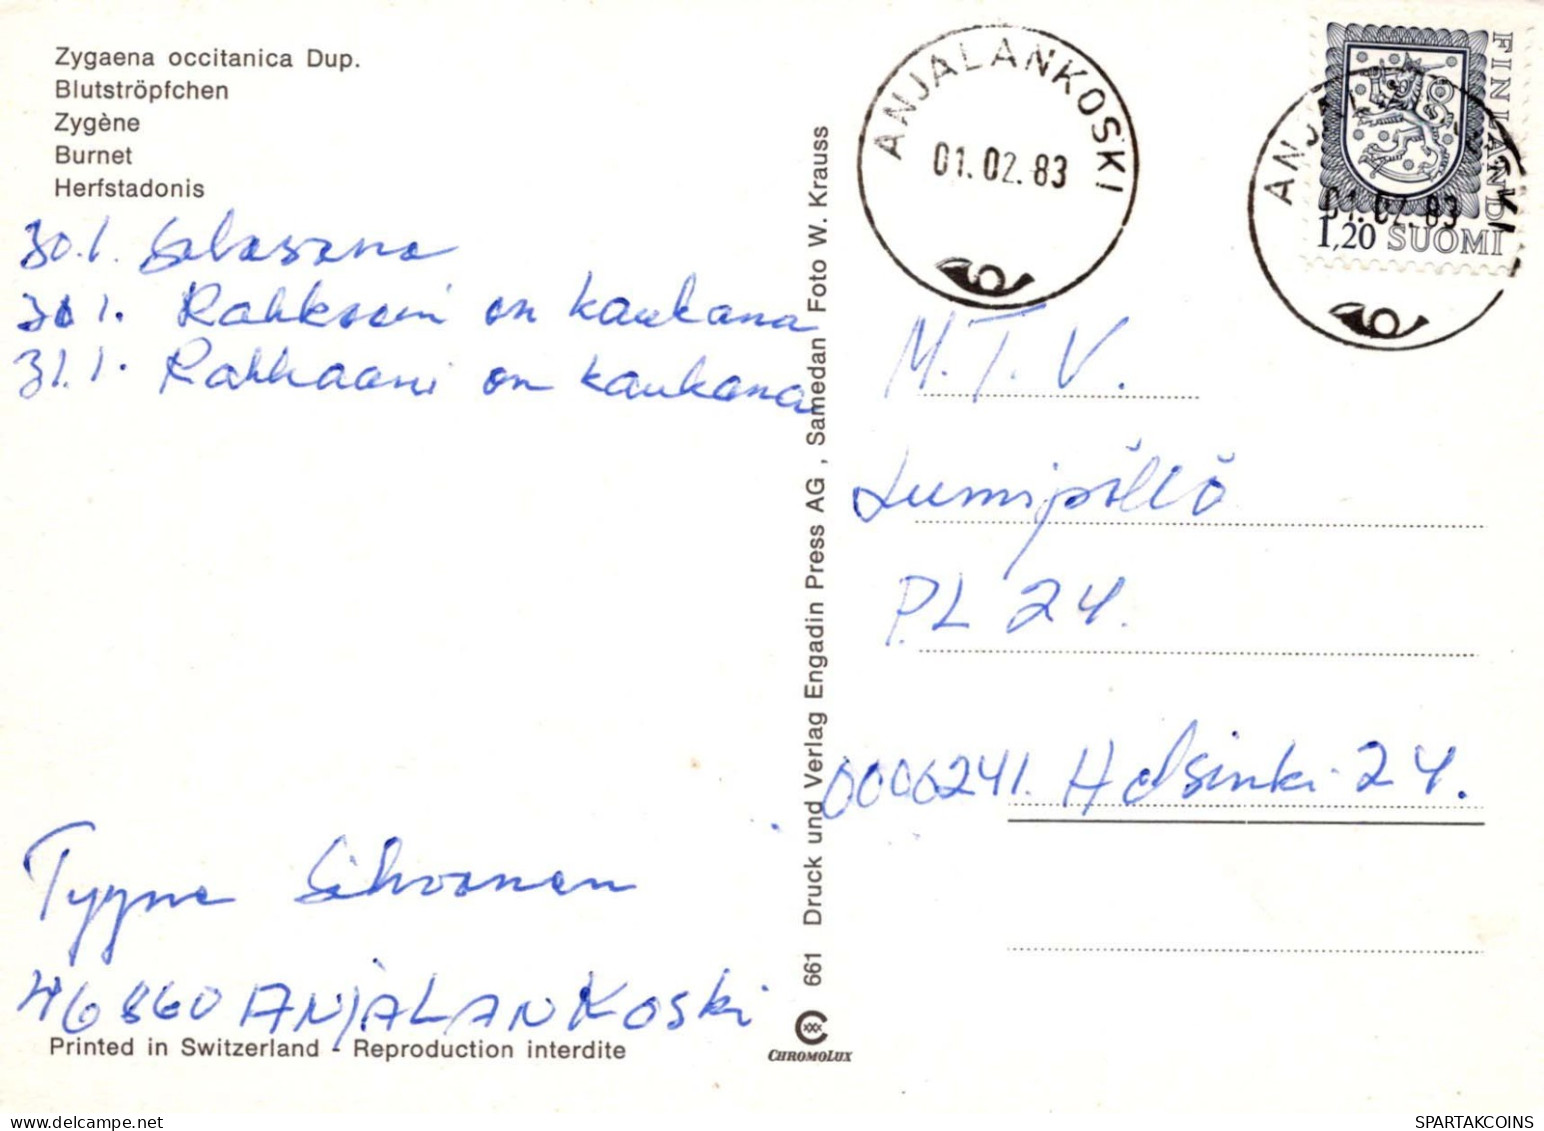 Zygaena occitanica Dup.
Blutströpfchen
Zygène
Burnet
Herfstadonis
30.1. Salasana
31.1. Rakkaani on kaukana
ANJALANKOSKI
01.02.83
ANJALANKOSKI
01.02.83
FINLAND
1,20 SUOMI
M.T.V.
Lumipöllö
PL 24.
0006241. Helsinki 24.
Tyyne Sihvonen
46860 ANJALANKOSKI
661 Druck und Verlag Engadin Press AG, Samedan Foto W. Krauss
CHROMOLUX
Printed in Switzerland - Reproduction interdite
SPARTAKCOINS